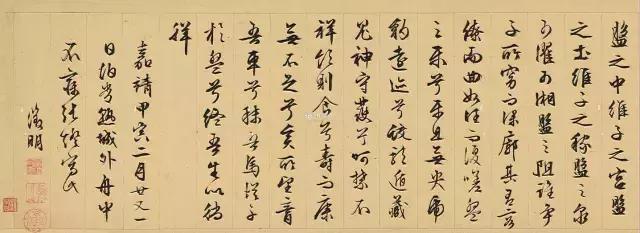 盤之中維子之宮盤
之土維子之稼盤之泉
可濯可湘盤之阻誰爭
子所窈而深廓其有容
繚而曲如往而復嗟盤
之樂兮樂且無央虎
豹遠跡兮蛟龍遁藏
鬼神守護兮呵禁不
祥飲則食兮壽而康
無不足兮奚所望膏
吾車兮秣吾馬從子
於盤兮終吾生以徜
徉
嘉靖甲寅二月廿又一
日泊常熟城外舟中
不寐張燈寫此
徵明